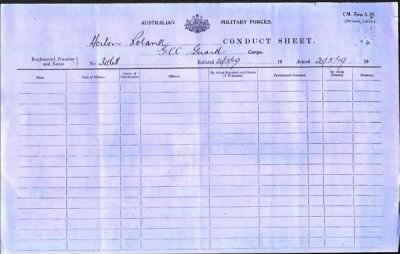 AUSTRALIAN MILITARY FORCES.
CONDUCT SHEET.
Horton Roland
G.C.C. Guard Corps.
Regimental Number and Name
No. 3468
Enlisted 20/5/19 19
Joined 20/5/19 19
Place.
Date of Offence.
Offence.
By whom Reported, and Names of Witnesses.
Punishment Awarded.
By whom Awarded.
Remarks.